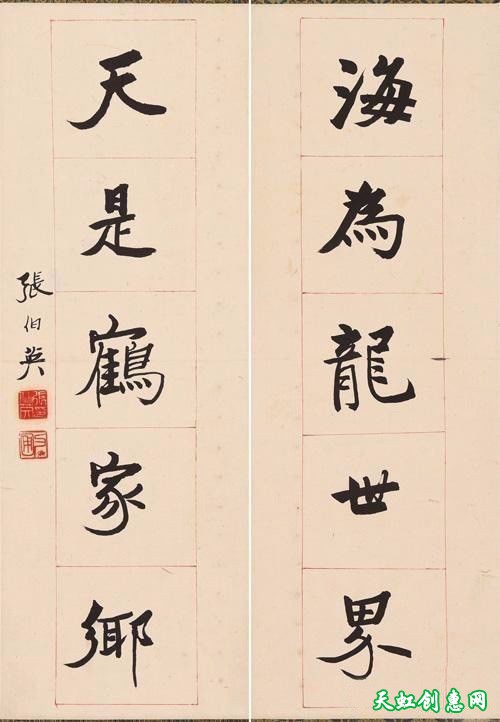 海為龍世界
天是鶴家鄉
張伯英
天虹创惠网